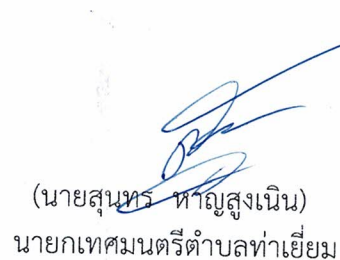 (นายสุนทร หาญสูงเนิน)
นายกเทศมนตรีตำบลท่าเยี่ยม